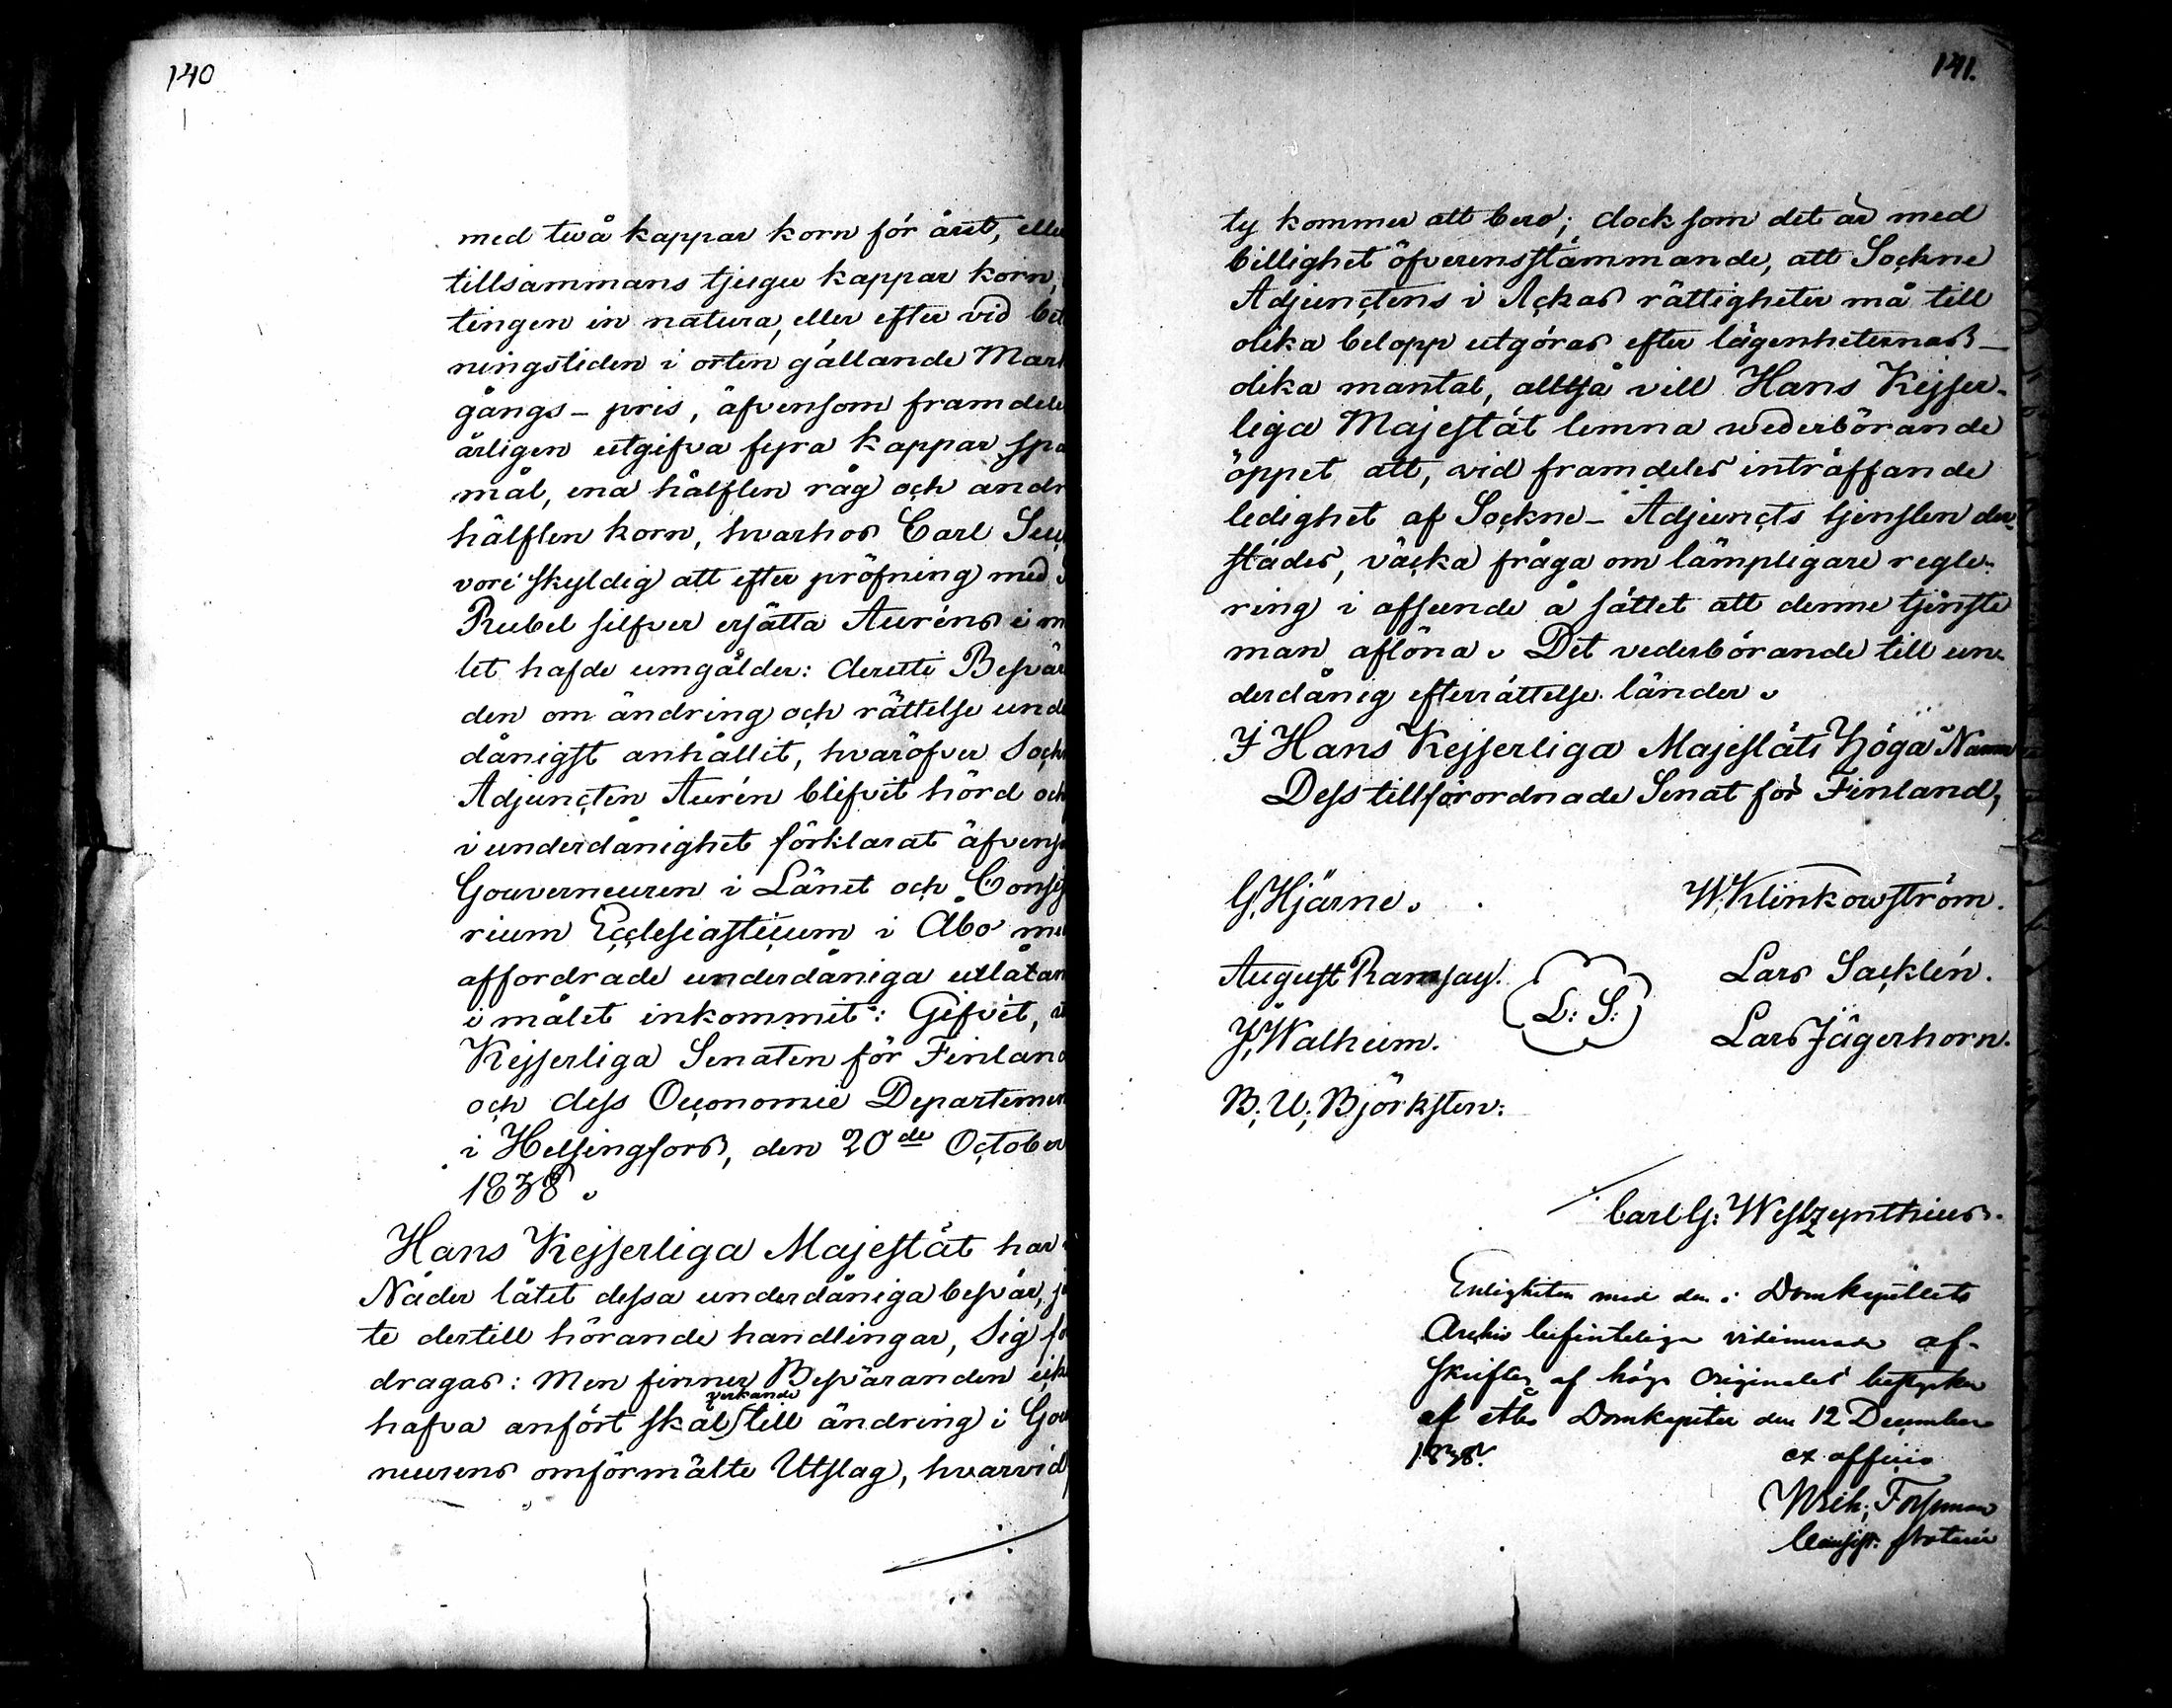 140
med två kappar korn för året, elle
tillsammans tjugu kappar korn,
tingen in natura, eller efter vid bet
ningstiden i orten gällande Mark
gångs- pris, äfvensom framdele
årligen utgifva fyra kappar spa
mål, ena hälften råg och andr
hälften korn, hvarhos Carl
vore skyldig att efter pröfning med
Rubel silfver ersätta Auréns i m
let hafde umgälder: derutti Besvär
den om ändring och rättelse unde
dånigst anhållit, hvaröfver Sock
Adjuncten Aurén blifvit hörd och
i underdånighet förklarat äfvens
Gouverneuren i Länet och Consis
rium Ecclesiasticum i Åbo me
affordrade underdåniga utlåtan
i målet inkommit: Gifvet,
Kejserliga Senaten för Finland
och dess Oeconomie Departemen
i Helsingfors, den 20de October
1838.
Hans Kejserliga Majestät har
Nåder låtit dessa underdåniga besvär, jä
te dertill hörande handlingar, Sig fö
dragas: Men finner Besväranden ick
verkande
hafva anfört skäl till ändring i Gou
neurens omförmälte Utslag, hvarvid
141.
ty kommer att bero; dock som det är med
billighet öfverensstämmande, att Sockne
Adjunctens i Ackas rättigheter må till
olika belopp utgöras efter lägenheternas
olika mantal, alltså vill Hans Kejser-
liga Majestät lemna wederbörande
öppet att, vid framdeles inträffande
ledighet af Sockne- Adjuncts tjensten der-
städes, väcka fråga om lämpligare regle-
ring i afseende å sättet att denne tjenste
man aflöna. Det vederbörande till un-
derdånig efterrättelse länder.
I Hans Kejserliga Majestäts Höga Namn
Dess tillförordnade Senat för Finland,
G. Hjärne. W. Klinkowström.
August Ramsay. Lars Sacklén.
L: S:
J. Walheim. Lars Jägerhorn.
B. U. Björksten.
Carl G: Westzynthius.
Enligheten med den i Domkapitlets
Archiv befinteliga vidimerade af-
skriften af höga Originalet bestyrker
af Åbo Domkapitel den 12 December
1838. ex officio
Wilh. Forsman
Consist. Notarie